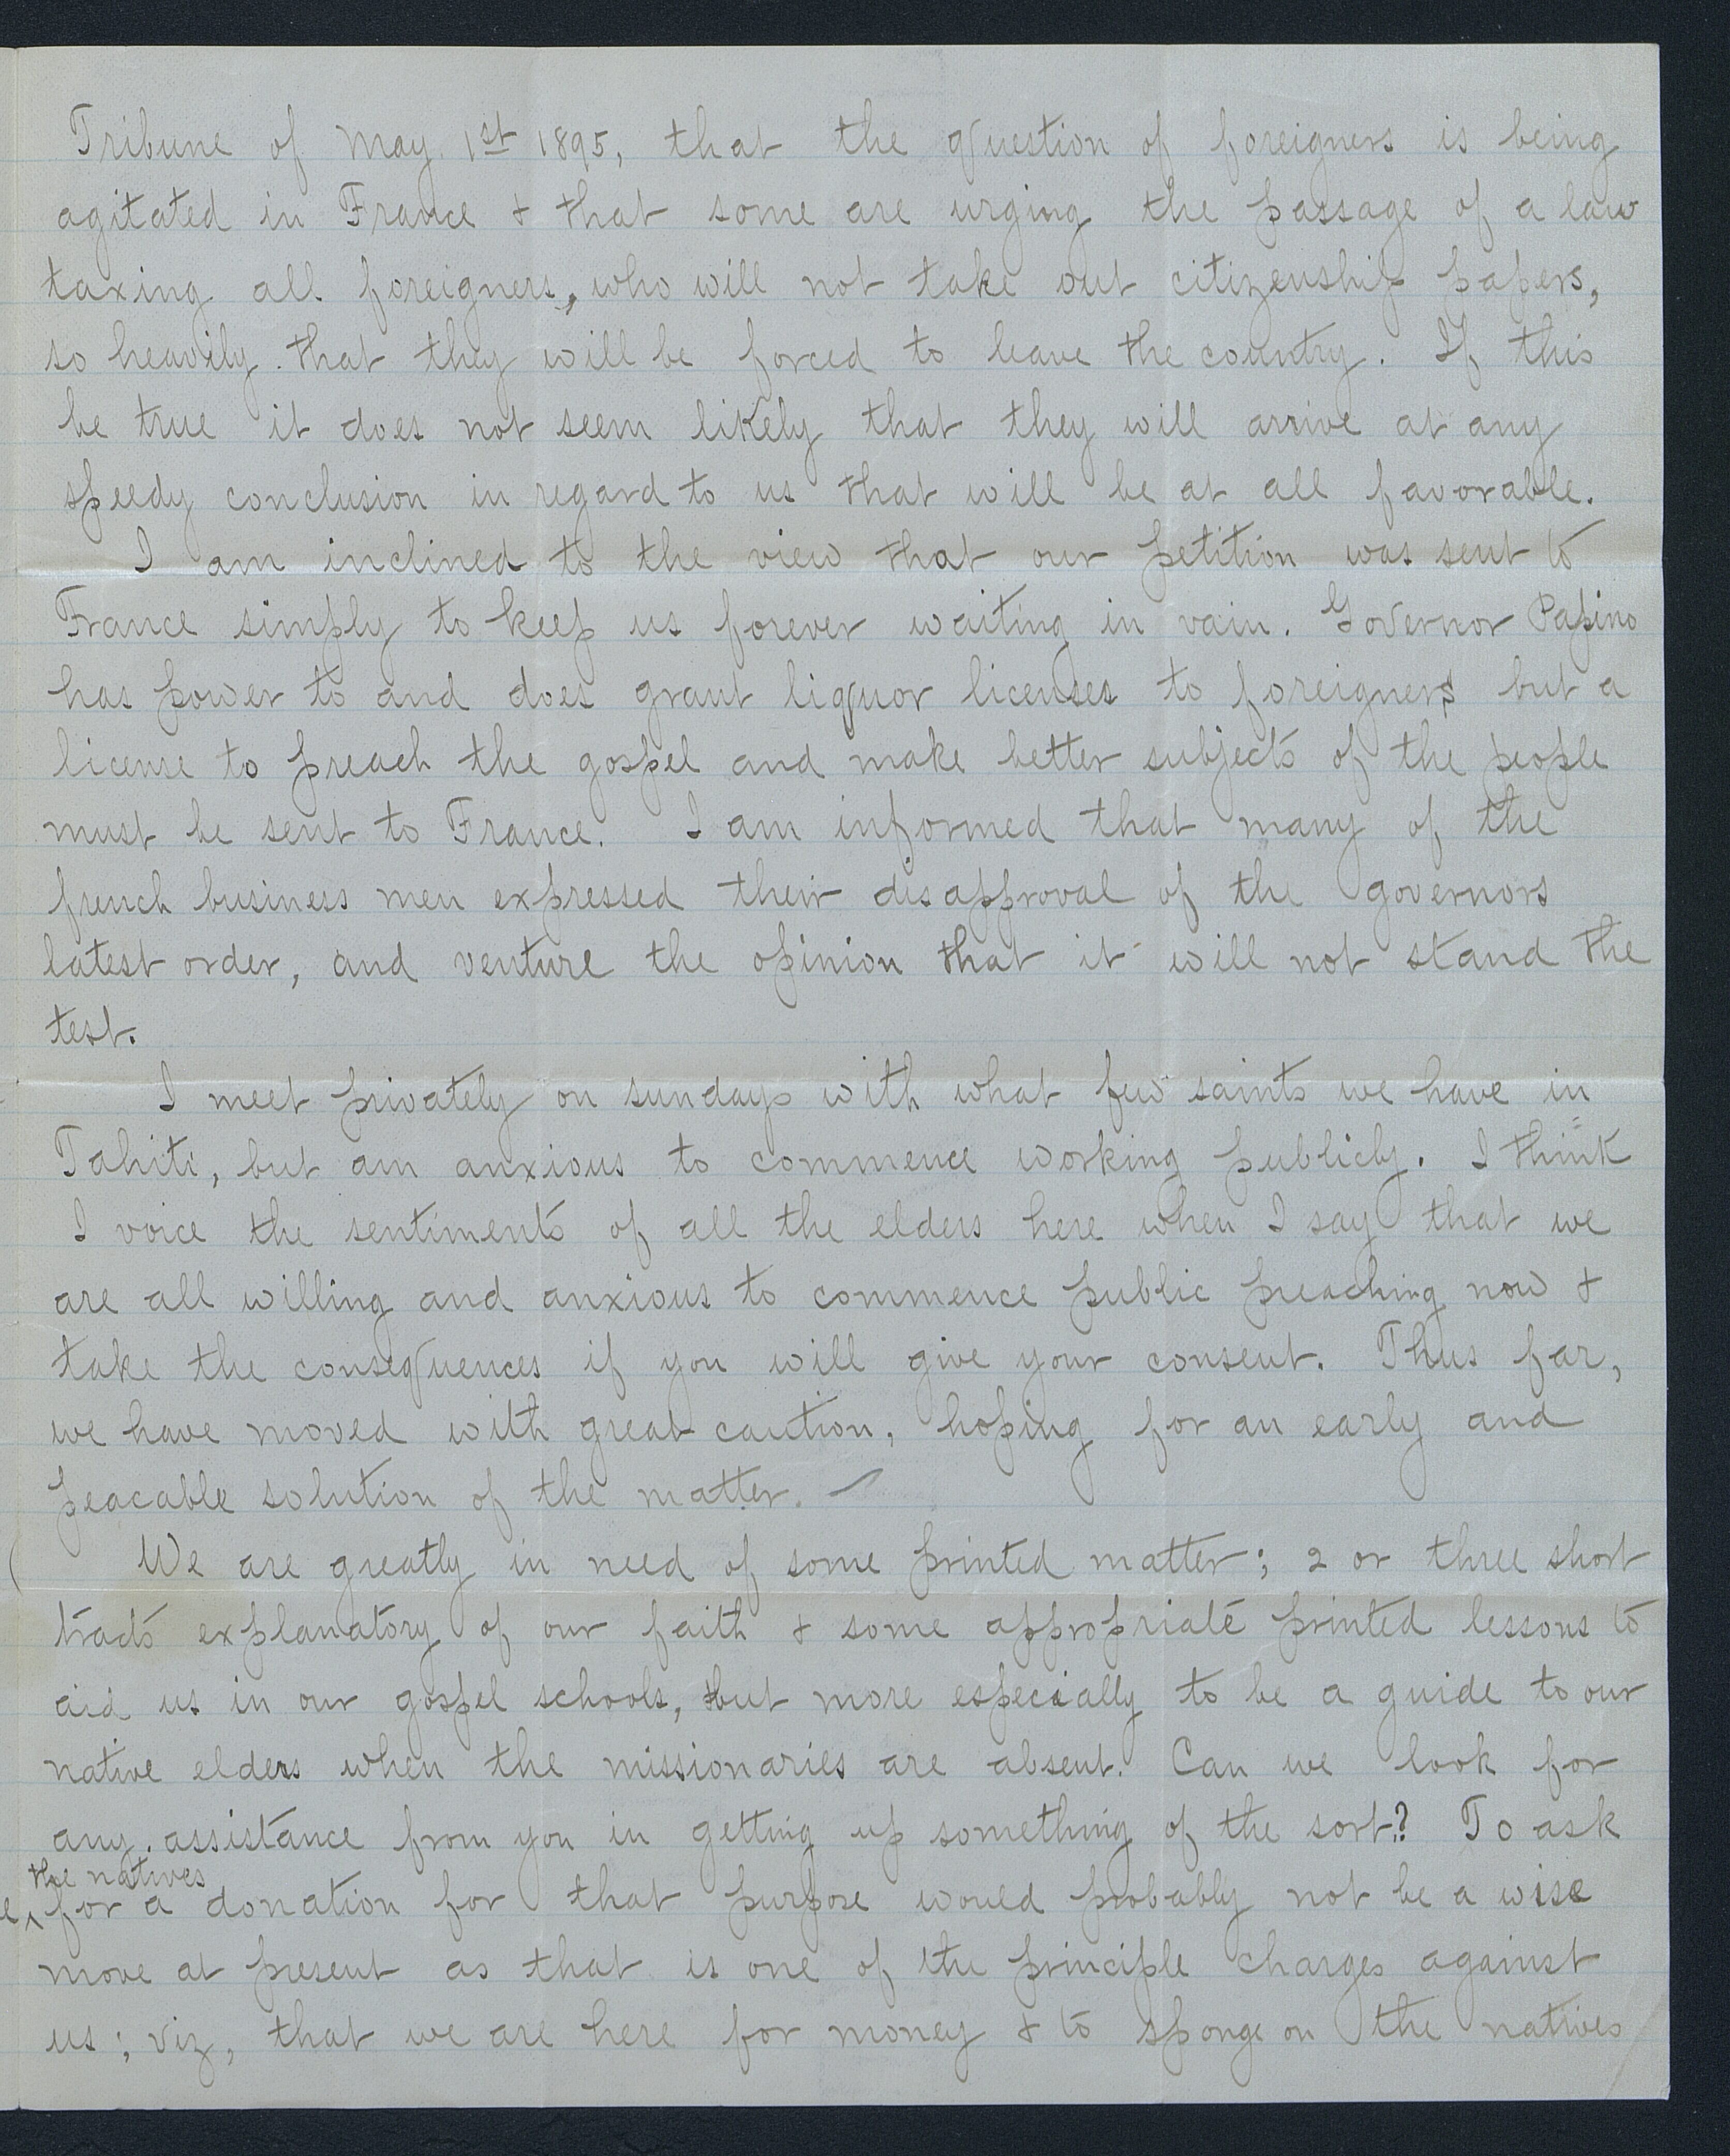 Tribune of May 1st 1895, that the question of foreigners is being
agitated in France & that some are urging the passage of a law
taxing all foreigners, who will not take out citizenship papers,
so heavily that they will be forced to leave the country. If this
be true it does not seem likely that they will arrive at any
speedy conclusion in regard to us that will be at all favorable.
I am inclined to the view that our petition was sent to
France simply to keep us forever waiting in vain. Governor Papino
has power to and does grant liquor licenses to foreigners but a
license to preach the gospel and make better subjects of the people
must be sent to France. I am informed that many of the
french business men expressed their disapproval of the governors
latest order, and venture the opinion that it will not stand the
test.
I meet privately on sundays with what few saints we have in
Tahiti, but am anxious to commence working publicly. I think
I voice the sentiments of all the elders here when I say that we
are all willing and anxious to commence public preaching now &
take the consequences if you will give your consent. Thus far,
we have moved with great caution, hoping for an early and
peacable solution of the matter.
We are greatly in need of some printed matter; 2 or three short
tracts explanatory of our faith & some appropriate printed lessons to
aid us in our gospel schools, but more especially to be a guide to our
native elders when the missionaries are absent. Can we look for
any assistance from you in getting up something of the sort? To ask
the natives
^ for a donation for that purpose would probably not be a wise
move at present as that is one of the principle charges against
us; viz, that we are here for money & to sponge on the natives